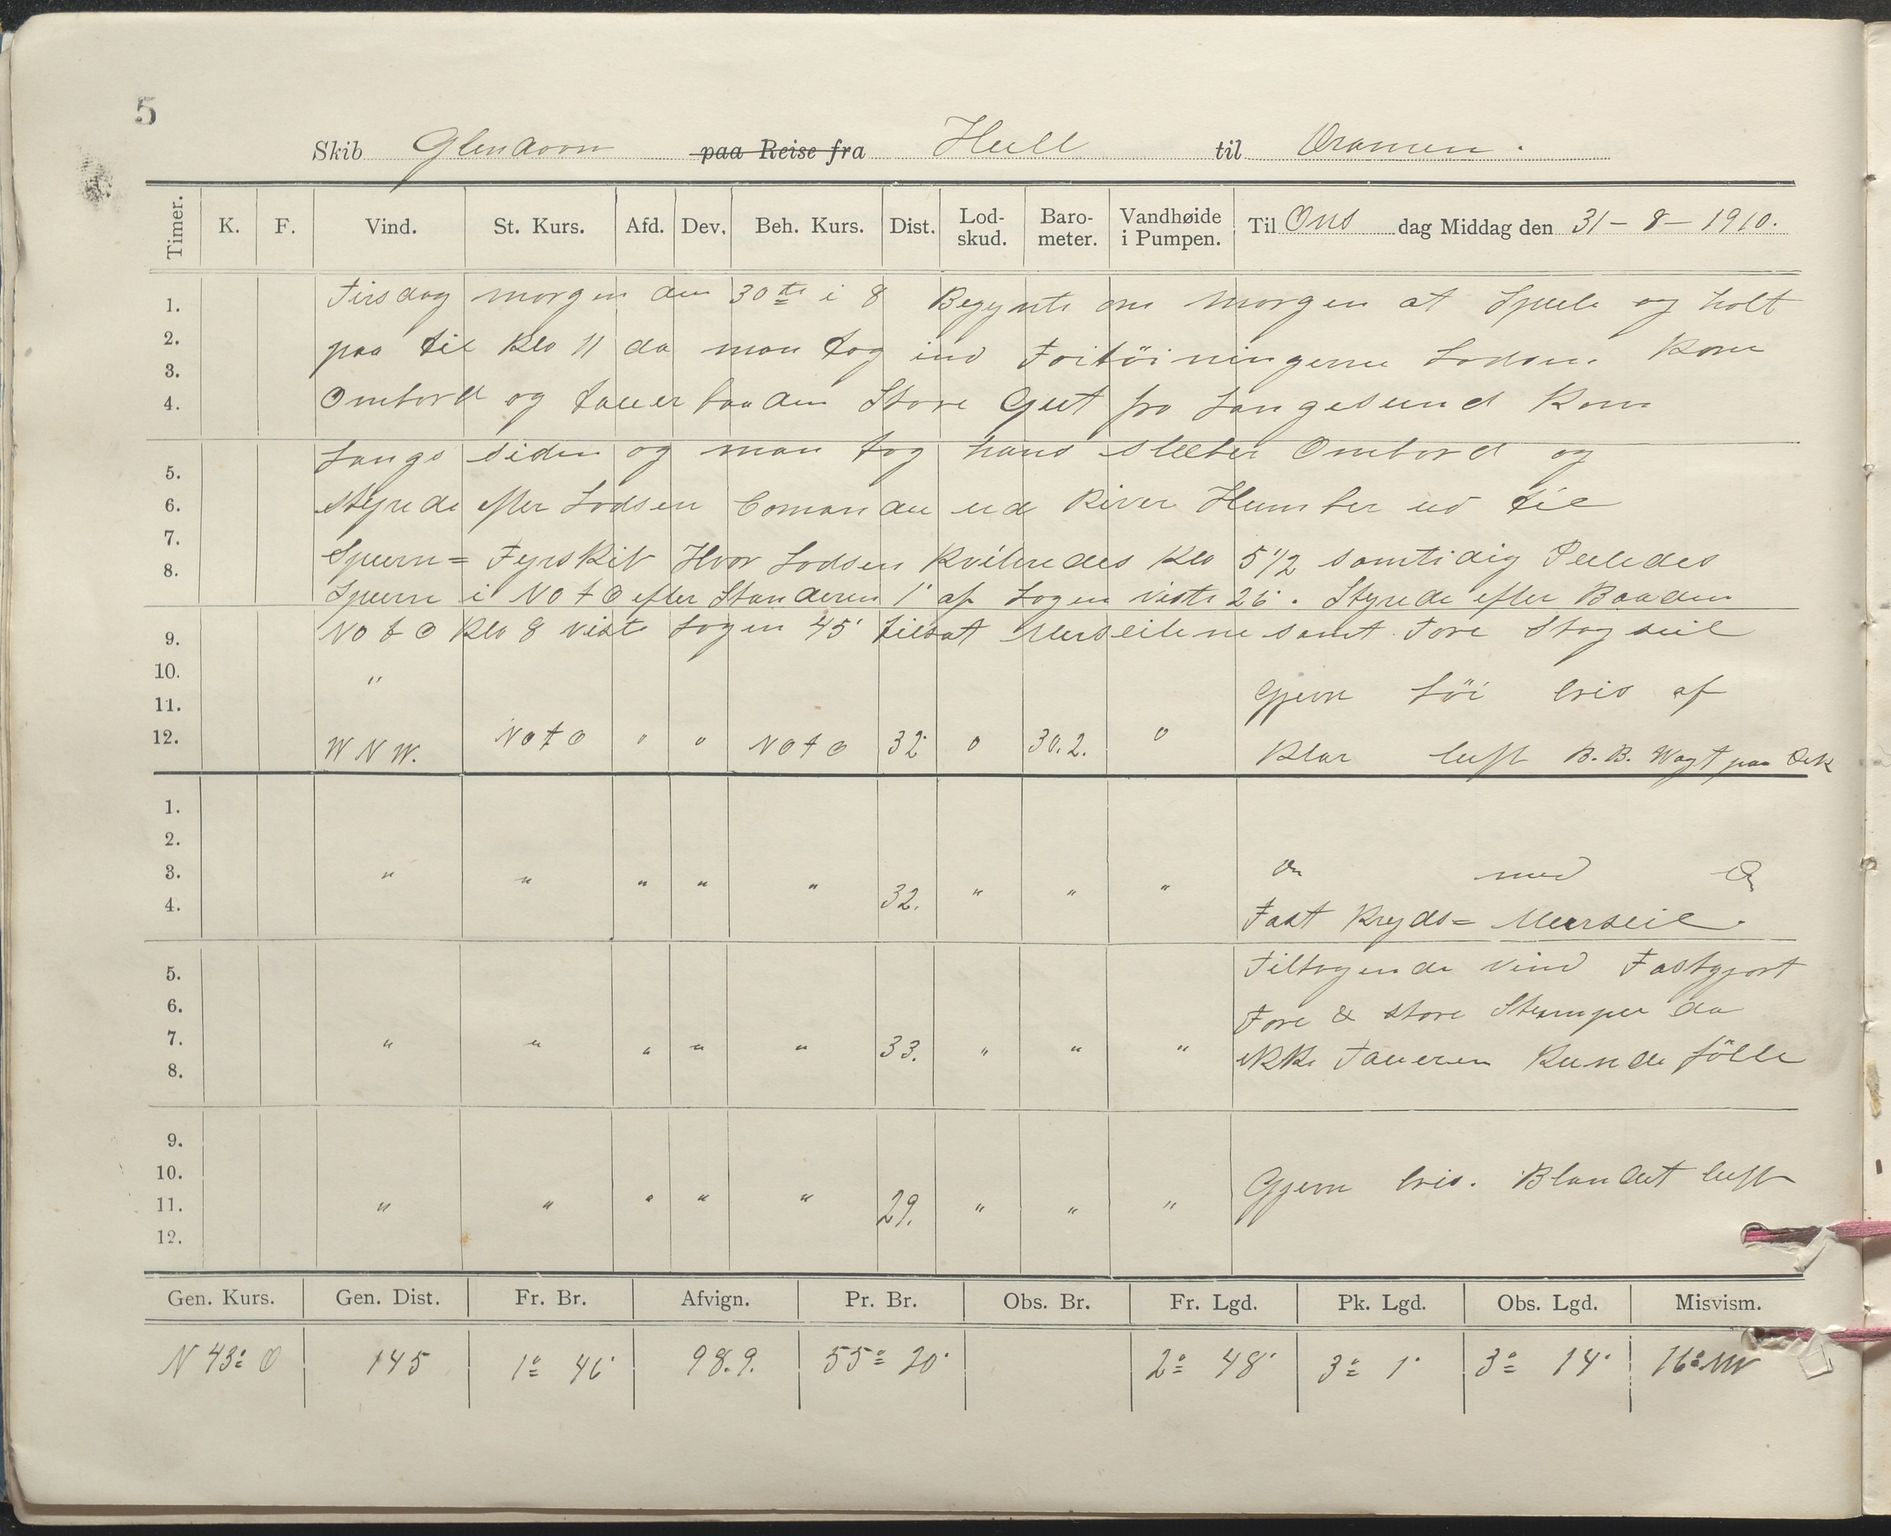 5
Skib Glenavon paa Reise fra Hull til Dramen.
Timer. K. F. Vind. St. Kurs. Afd. Dev. Beh. Kurs. Dist. Lod-skud. Baro-meter. Vandhøide i Pumpen. Til Ons dag Middag den 31-8-1910.
1. Tirsdag morgen den 30te i 8 Begynte om morgen at Spule og holt
2. paa til Klo 11 da man tog ind Fortöiningerne Lodsen Kom
3.
4. Ombord og tauerbaaden Store Gut fra Langesund Kom
Langs siden og man tog hans slæber Ombord og
5.
6. styrede efter Lodsen Comando ud River Humber ud til
7.
8. Spurn= Fyrskib Hvor Lodsen Kvitredes Klo 5 1/2 samtidig Peiledes
Spurn i NO t O efter Standeren 1' af Logen viste 26'. Styrede efter Baaden
9. NO t O Klo 8 viste Logen 45' tilsat Merseilene samt Fore Stagseil
10. " Gjevn Löi bris af
11.
12. W N W. NO t O 0 0 NO t O 32 0 30.2. 0 Klar luft B.B. Wagt paa Dek
1.
2.
3. " " " " " 32. " " " Do med Do
4. Fast Kryds= Merseil.
5. Tiltagende vind Fastgjort
6. Fore & store Stumper da
7. " " " " " 33. " " " ikke Taueren Kunde fölle
8.
9.
10. Gjevn bris. Blandet luft
11. " " " " " 29. " " "
12.
Gen. Kurs. Gen. Dist. Fr. Br. Afvign. Pr. Br. Obs. Br. Fr. Lgd. Pk. Lgd. Obs. Lgd. Misvism.
N 43° O 145 1° 46' 98.9. 55° 20' 2° 48' 3° 1' 3° 14' 16° W